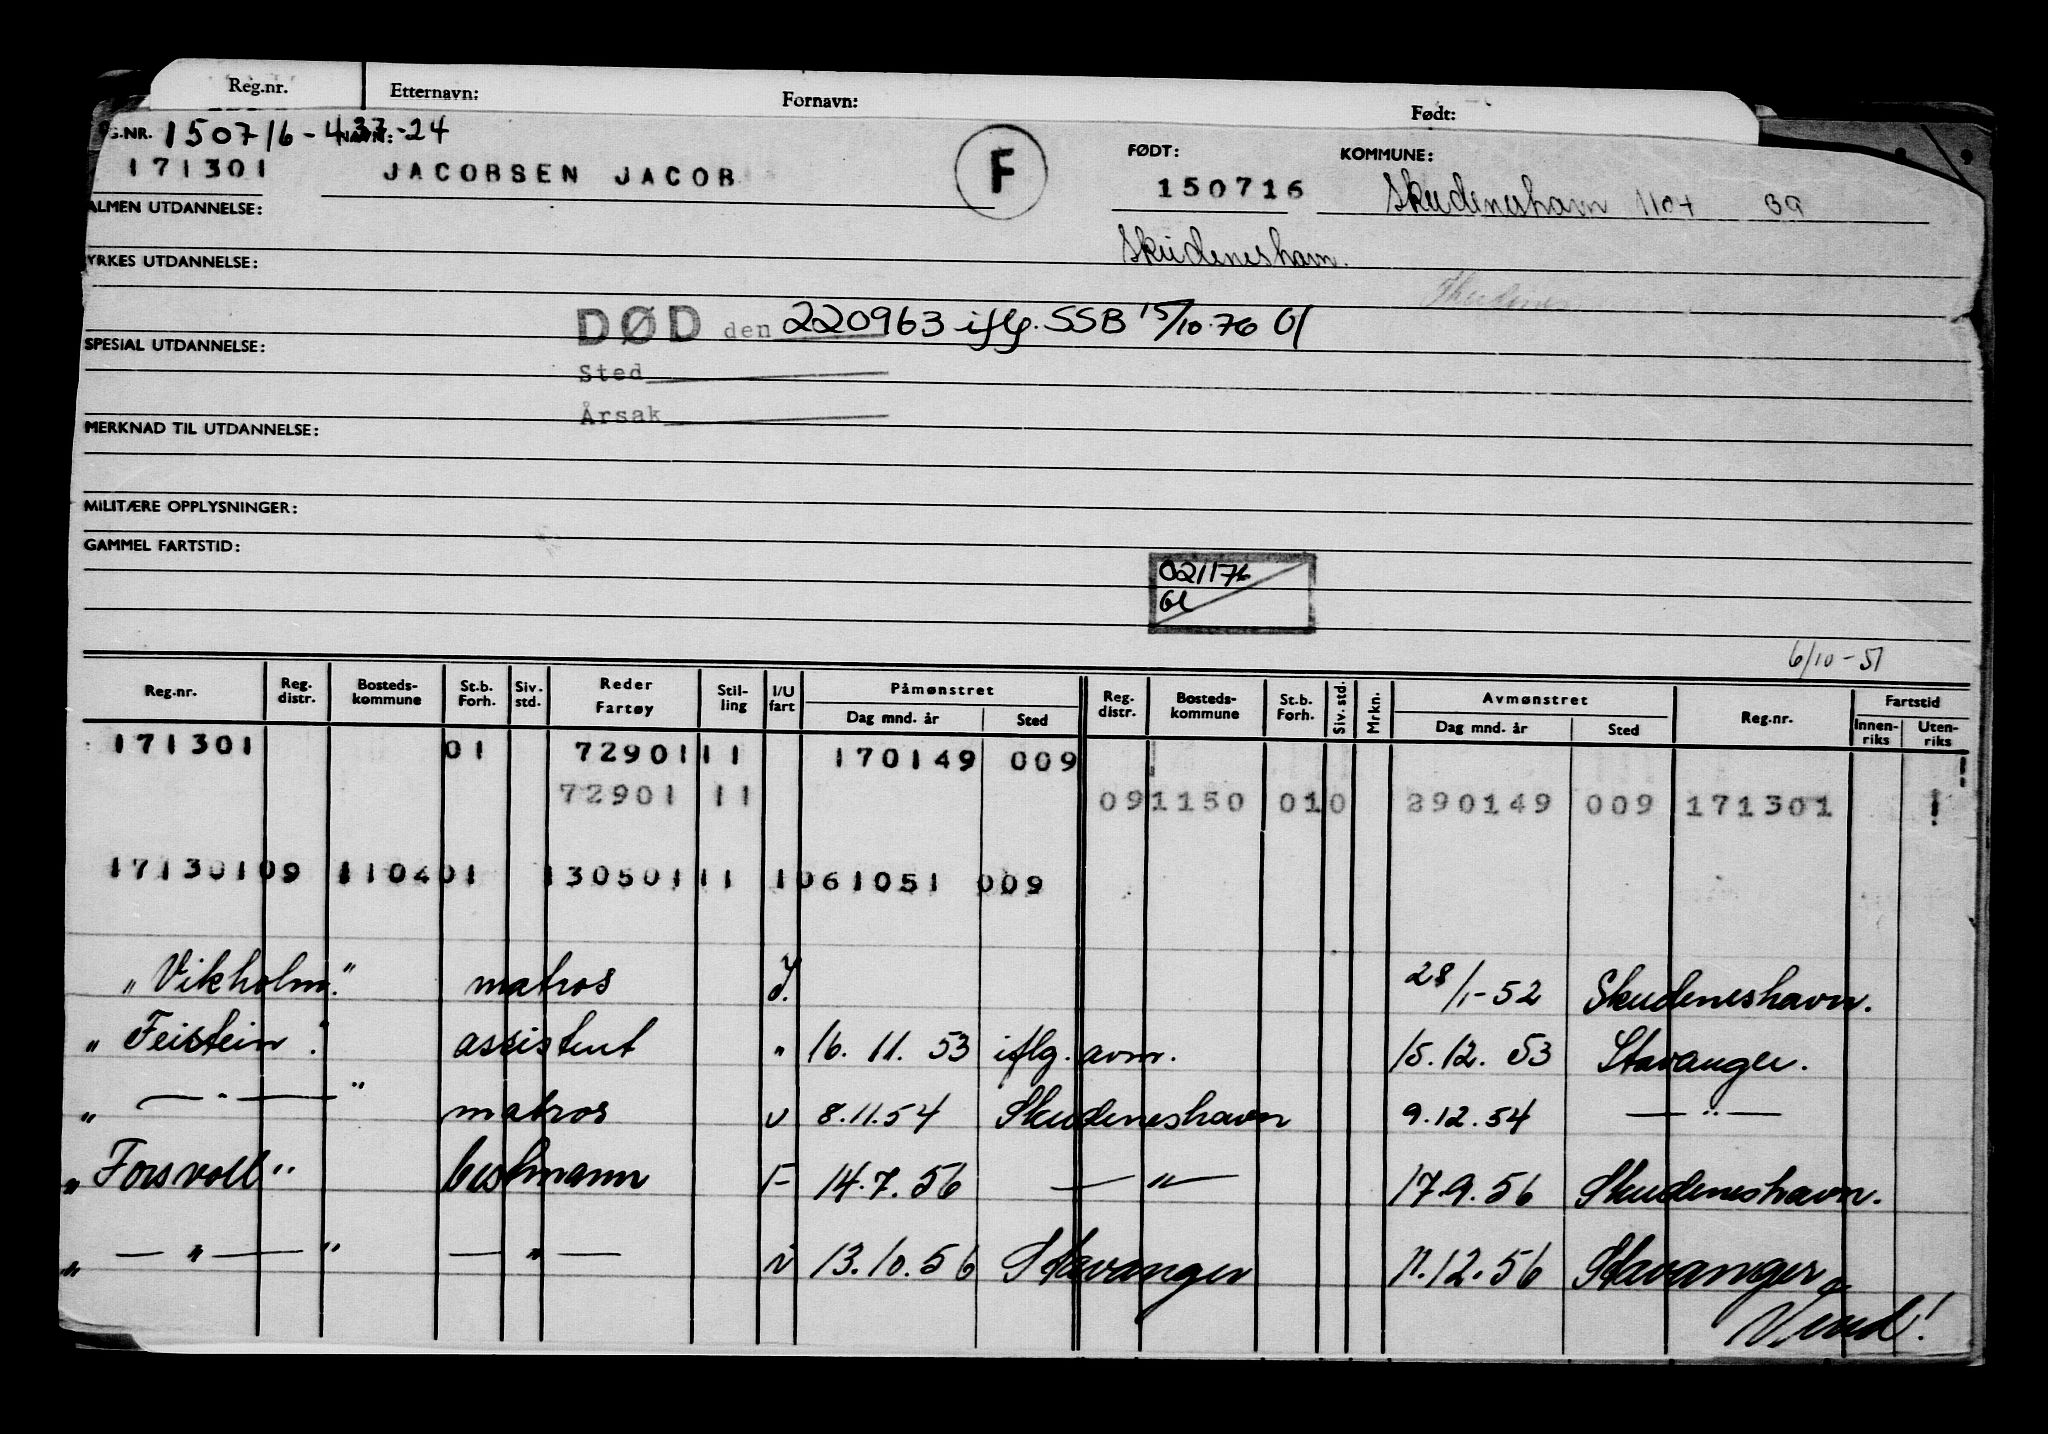 Reg.nr. Etternavn: Fornavn: Født:
G.NR. 150716-437-24 NAVN: FØDT: KOMMUNE:
171301 JACOBSEN JACOB F 150716 Skudeneshavn 1104
ALMEN UTDANNELSE:
Skudeneshavn.
YRKES UTDANNELSE:
Skudenes
DØD den 220963 iflg. SSB 15/10.76 Gl
SPESIAL UTDANNELSE:
Sted
Årsak
MERKNAD TIL UTDANNELSE:
MILITÆRE OPPLYSNINGER:
GAMMEL FARTSTID:
021176
Gl
6/10-51
Reg.nr. Reg. distr. Bosteds-kommune St.b. Forh. Siv. std. Reder Fartøy Stil-ling I/U fart Påmønstret Dag mnd. år Sted Reg. distr. Bosteds-kommune St.b. Forh. Siv. std. Mrkn. Avmønstret Dag mnd. år Sted Reg.nr. Fartstid Innen-riks Uten-riks
171301 01 72901 11 170149 009
72901 11 091150 010 290149 009 171301 1
171301 09 1104 01 130501 11 1 061051 009
"Vikholm." matros I. 28/1-52 Skudeneshavn.
" Feistein". assistent " 16.11.53 iflg. avm. 15.12.53 Stavanger.
" — " — " matros u 8.11.54 Skudeneshavn 9.12.54 — " —
"Forsvoll" bestmann F 14.7.56 — " — 17.9.56 Skudeneshavn.
" — " — " — " — i 13.10.56 Stavanger 11.12.56 Stavanger
Vend!